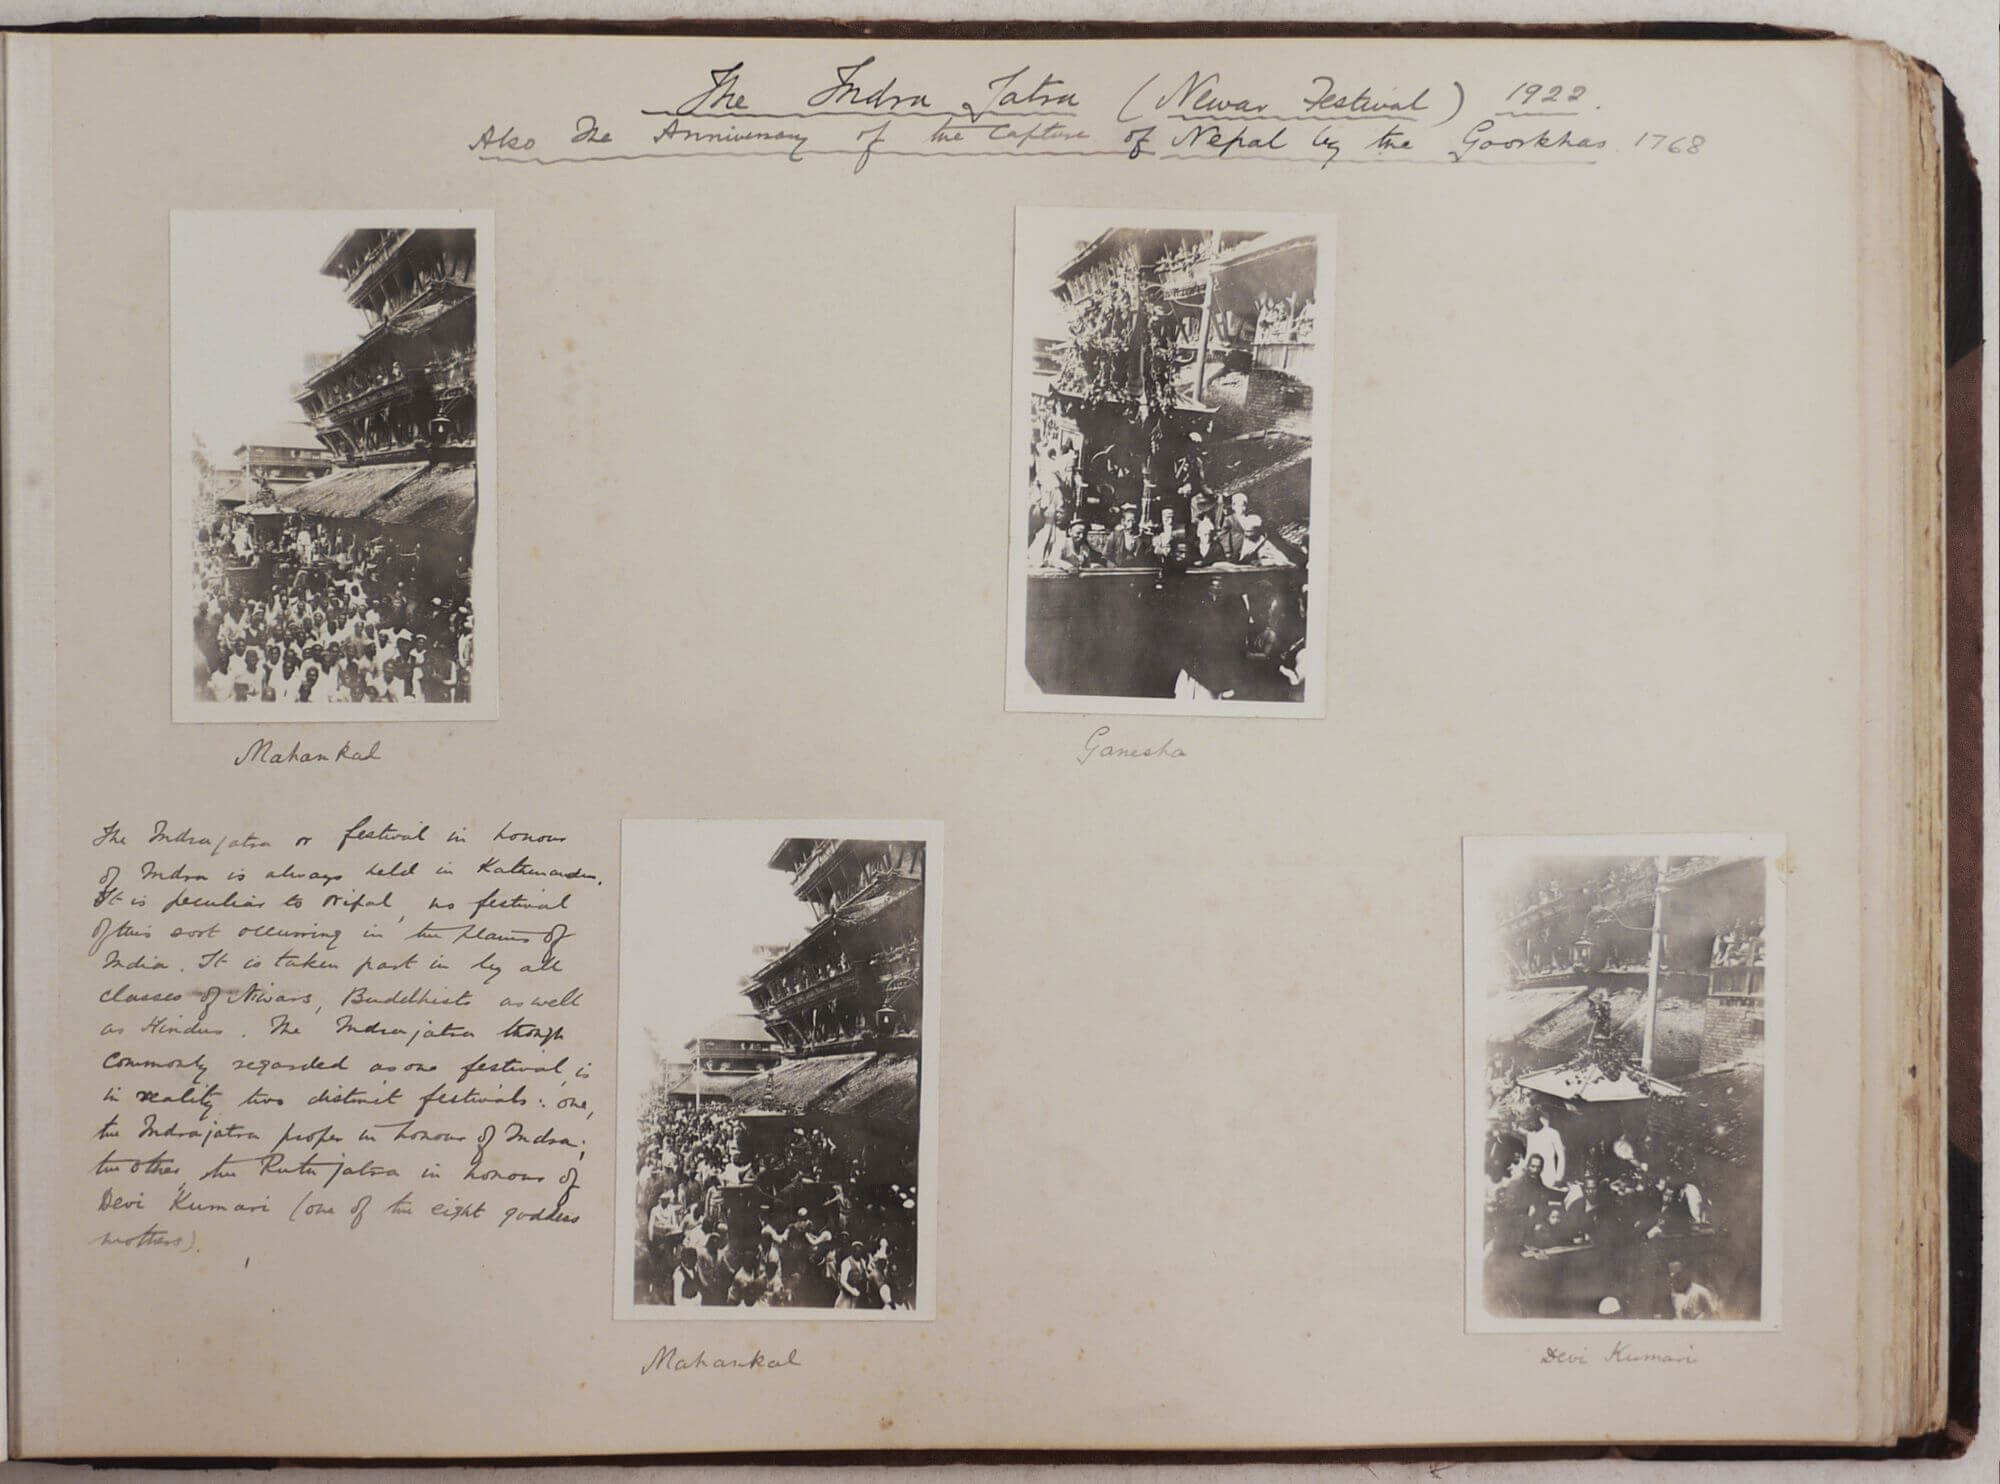 The Indra Jatra (Newar Festival) 1922.
Also The Anniversary of the Capture of Nepal by the Goorkhas 1768
Mahankal
Ganesha
The Indrajatra or festival in honour
of Indra is always held in Kathmandu.
It is peculiar to Nipal, no festival
of this sort occurring in the plains of
India. It is taken part in by all
classes of Niwars, Buddhists as well
as Hindus. The Indrajatra though
commonly regarded as one festival, is
in reality two distinct festivals: one,
the Indrajatra proper in honour of Indra;
the other, the Ruth jatra in honour of
Devi Kumari (one of the eight goddess
mothers).
Mahankal
Devi Kumari